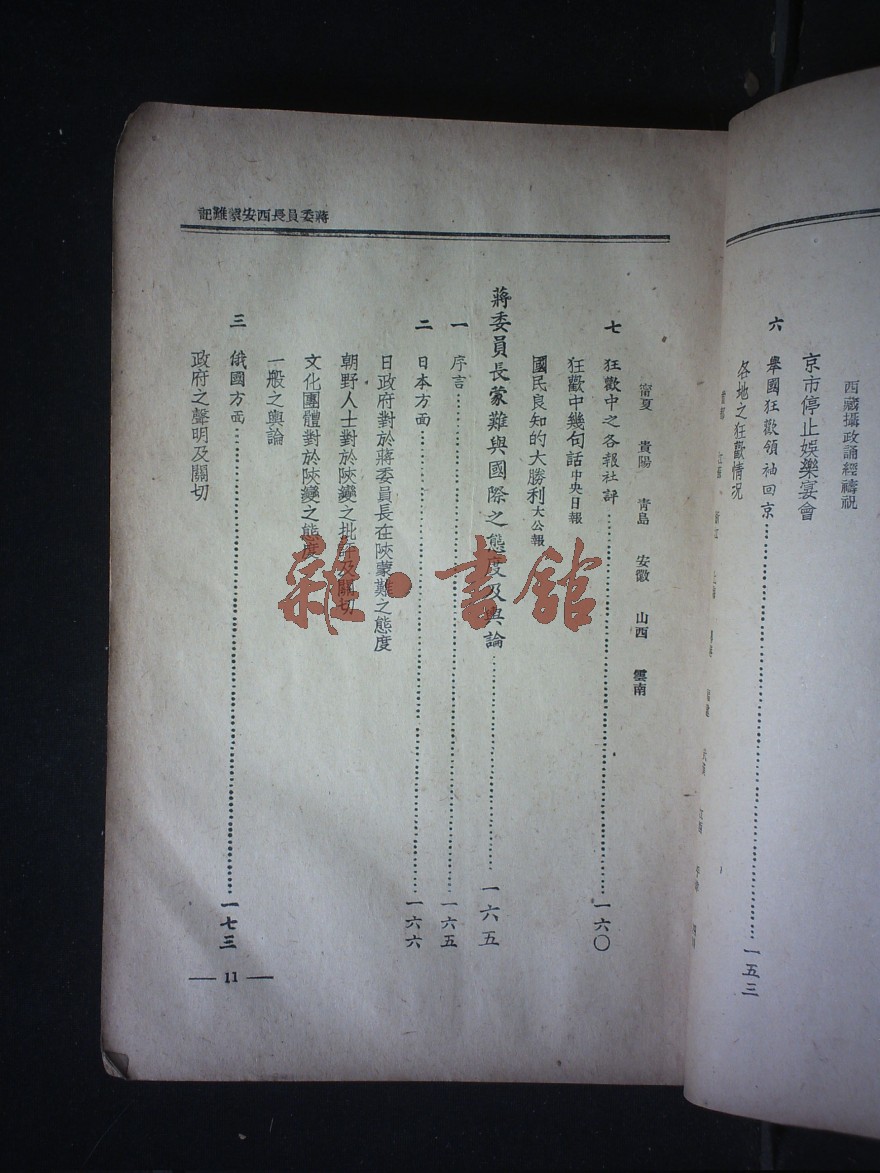 西藏攝政誦經禱祝
京市停止娛樂宴會
六 舉國狂歡領袖回京……一五三
各地之狂歡情况
蔣委員長西安蒙難記
甯夏 貴陽 青島 安徽 山西 雲南
七 狂歡中之各報社評……一六〇
狂歡中幾句話中央日報
國民良知的大勝利大公報
蔣委員長蒙難與國際之態度及輿論……一六五
一 序言……一六五
二 日本方面……一六六
日政府對於蔣委員長在陝蒙難之態度
朝野人士對於陝變之批評及關切
文化團體對於陝變之態度
一般之輿論
三 俄國方面……一七三
政府之聲明及關切
— 11 —
雜·書館